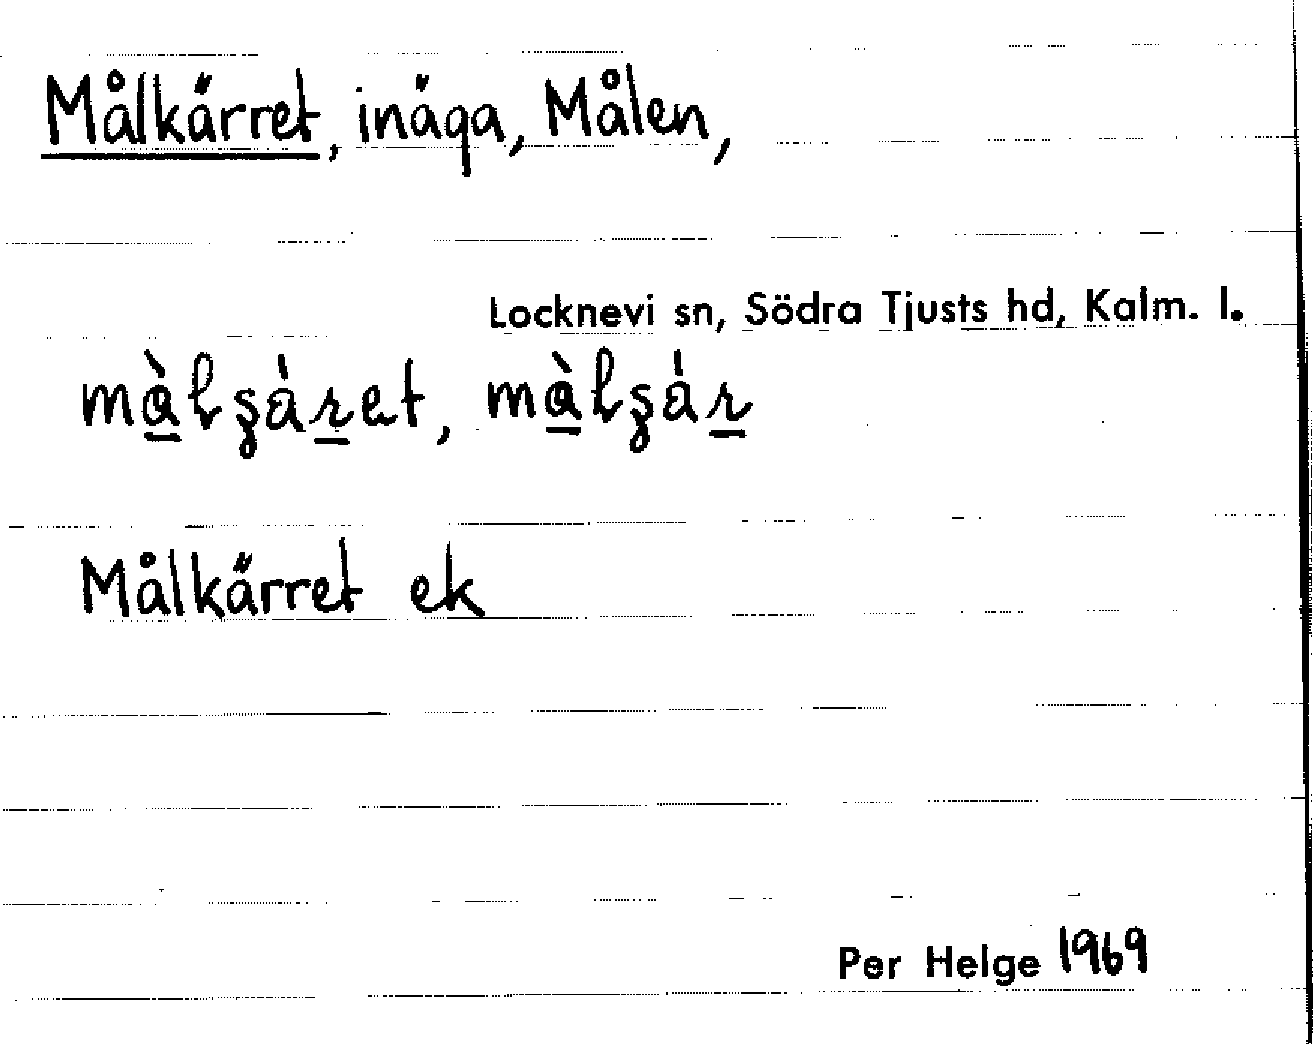 Målkärret, inäga, Målen,
Locknevi sn, Södra Tjusts hd, Kalm. l.
Målkärret ek
Per Helge 1969